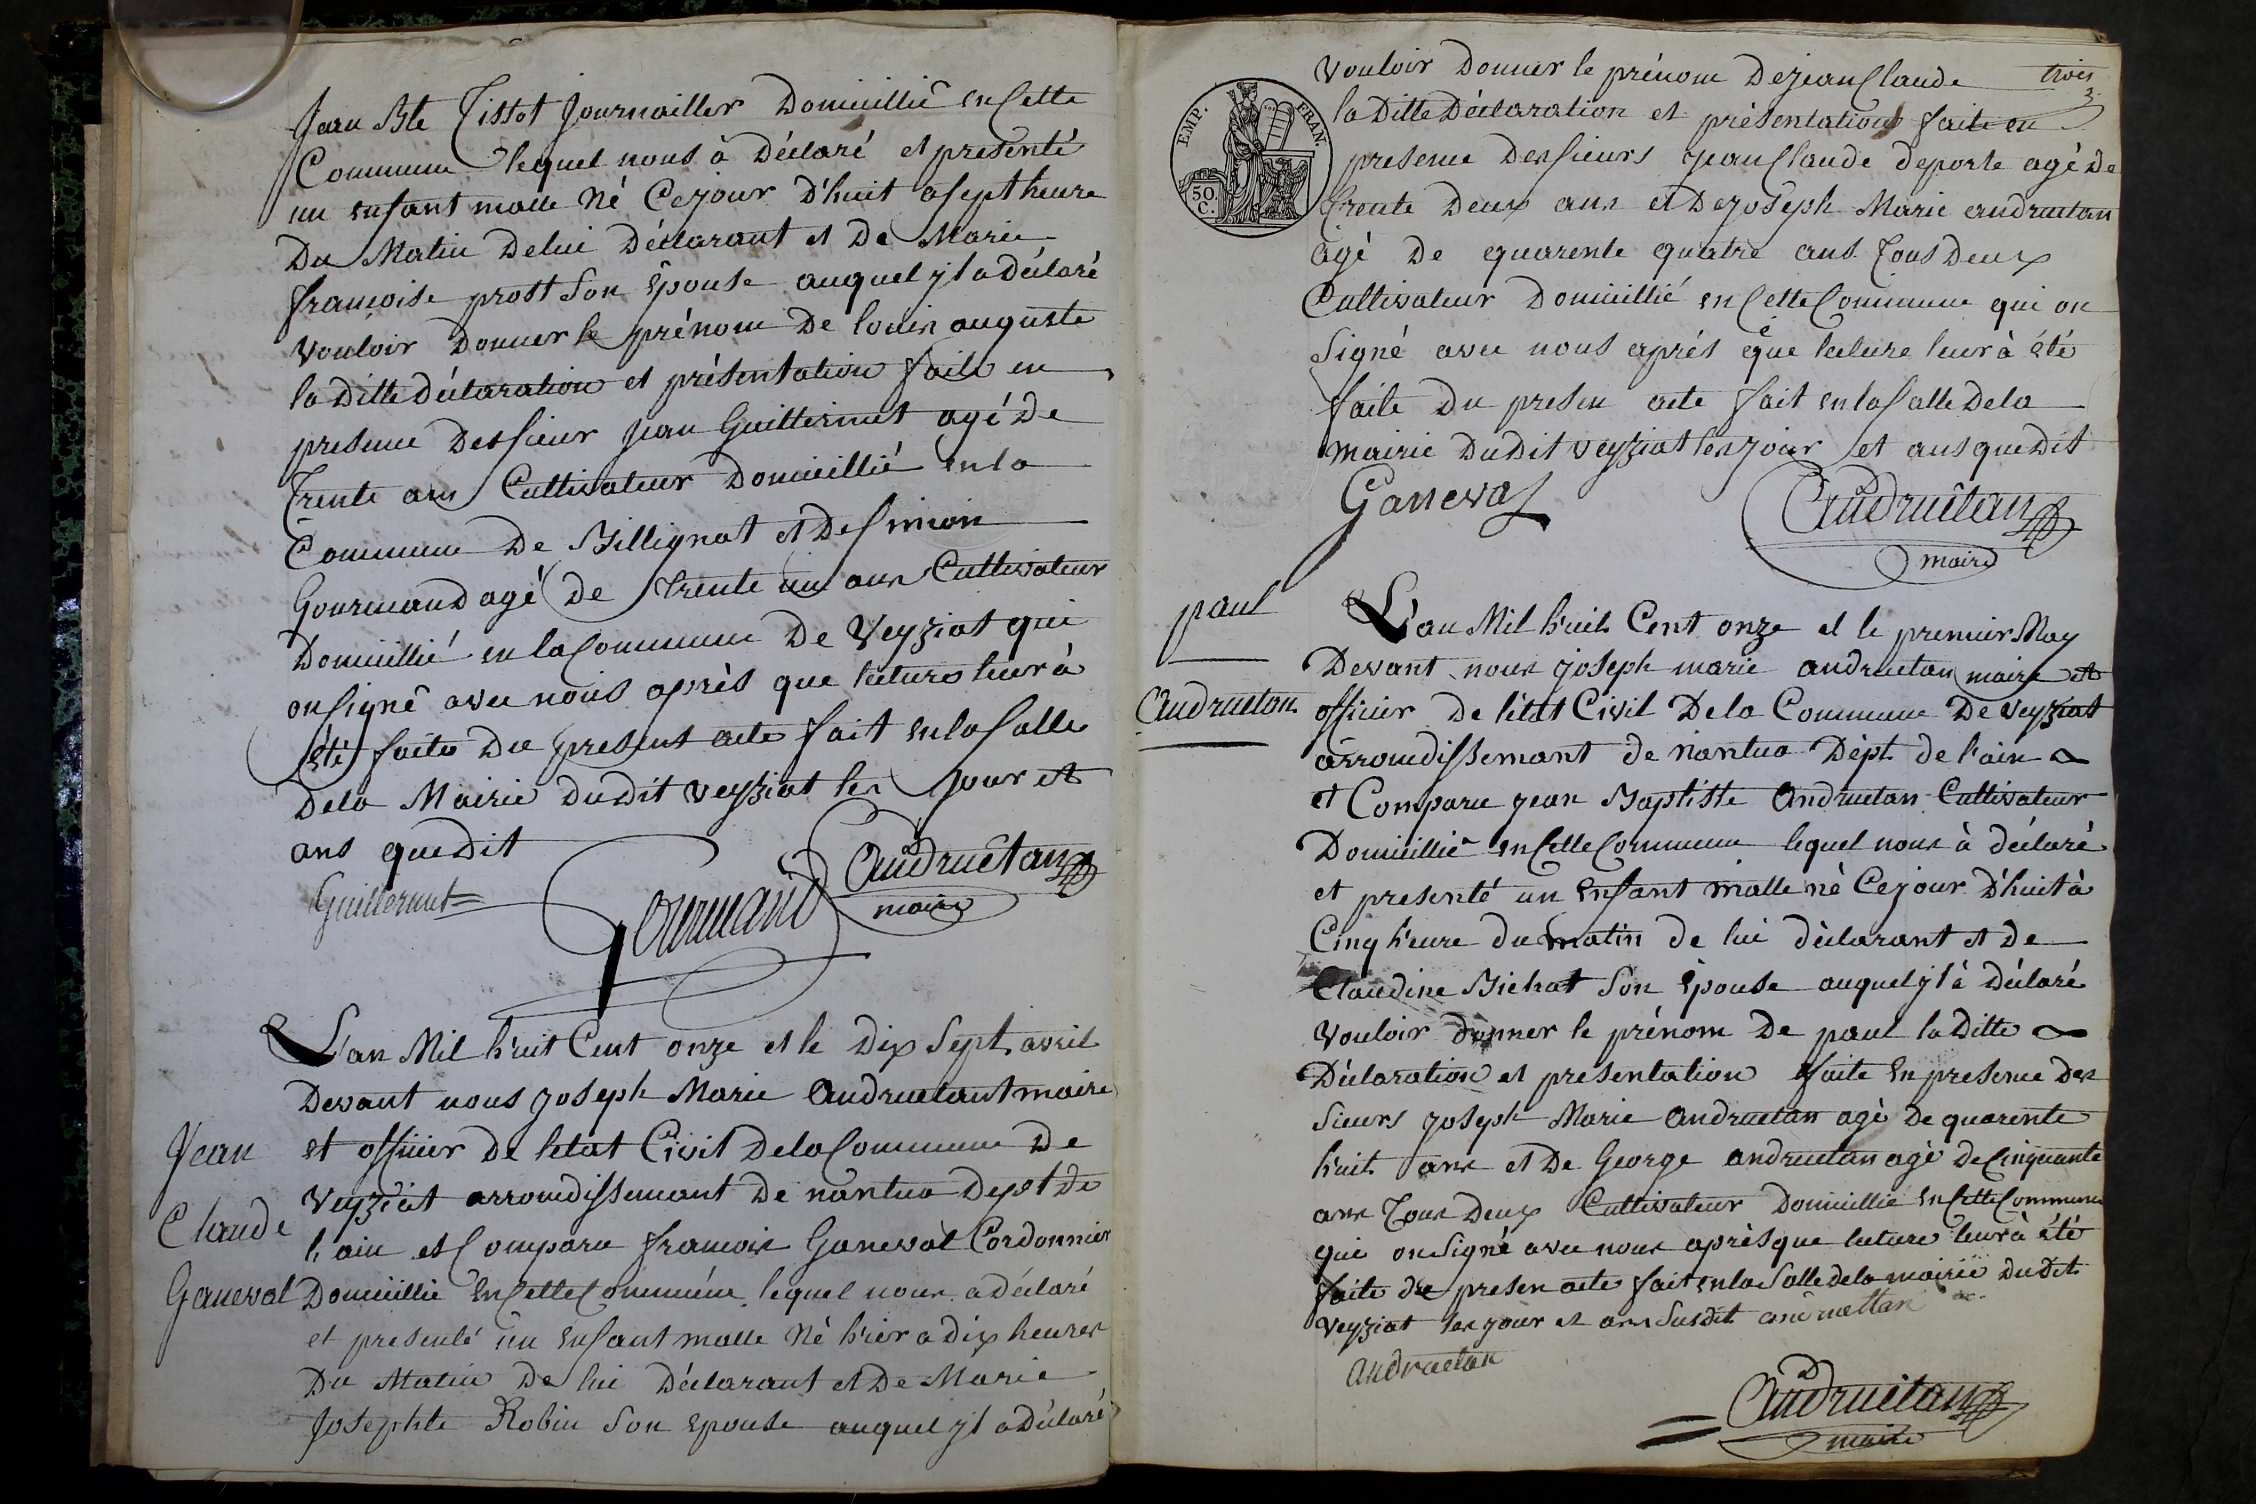 Jean Bte Tissot Journailler Domicillié en Cette
Commune lequel nous à Déclaré et presenté
un enfant malle Né Cejour D'huit a sept heure
Du Matin Delui Déclarant et De Marie
françoise prost Son Épouse auquel yl a Déclaré
vouloir Donner le prénom De louis auguste
la Ditte Déclaration et présentation faite en
presence Des sieur jean Guillermet agé De
Trente ans Cultivateur Domicillié en la
Commune De Billignat et De Simion
Gourmand agé De Trente un ans Cultivateur
Domicillié en la Commune De Veyziat qui
on signé avec nous après que lecture leur à
été faite Du present acte fait en la Salle
Dela Mairie dudit veyziat les jour et
ans quedit
Guillermet Gourmand Andruétan
maire
L'an Mil huit Cent onze et le Dix Sept avril
Devant nous joseph Marie Andruetant maire
et officier De létat Civil Dela Commune De
Veyziat arroundissemant De nantua Dept De
l'ain est Comparu françois Ganeval Cordonnier
Domicillié en Cette Commune lequel nous a déclaré
et presenté un enfant malle Né hier a dix heures
Du Matin De lui Déclarant et De Marie
Josephte Robin Son epouse auquel yl a Déclaré
Jean
Claude
Ganeval
trois
3
EMP. FRAN.
50
C.
vouloir Donner le prénom De jean Claude
la Ditte Déclaration et présentation faite en
presence Des sieurs jean Claude deporte agé De
Trente Deux ans et De joseph Marie andruetan
agé De quarente quatre ans Tous Deux
Cultivateur Domicillié en Cette Commune qui on
Signé avec nous après que lecture leur à été
faite Du presen acte fait en la Salle Dela
mairie Dudit veyziat les jour et ans que Dit
Ganeval Andruétan
maire
paul
Andruetan
L'an Mil huit Cent onze et le premier May
Devant nous joseph marie andruetan maire et
officier De létat Civil Dela Commune De veyziat
arroundissemant de nantua Dépt de l'ain
et Comparu jean Baptiste Andruetan Cultivateur
Domicillié en Cette Commune lequel nous à déclaré
et presenté un enfant malle né Cejour D'huit à
Cinq heure du matin de lui déclarant et de
Claudine Bichat Son Épouse auquel yl à Déclaré
vouloir donner le prénom De paul la Ditte
Déclaration et presentation faite en presence Des
Sieurs joseph Marie Andruetan agé De quarente
huit ans et De George andruetan agé De Cinquante
ans Tous Deux Cultivateur Domicillié en Cette Commune
qui on Signé avec nous après que lecture leur à été
faite du presen acte fait en la Salle dela mairie dudit
veyziat les jour et ans Susdit andruettan
andruetan
Andruétan
maire